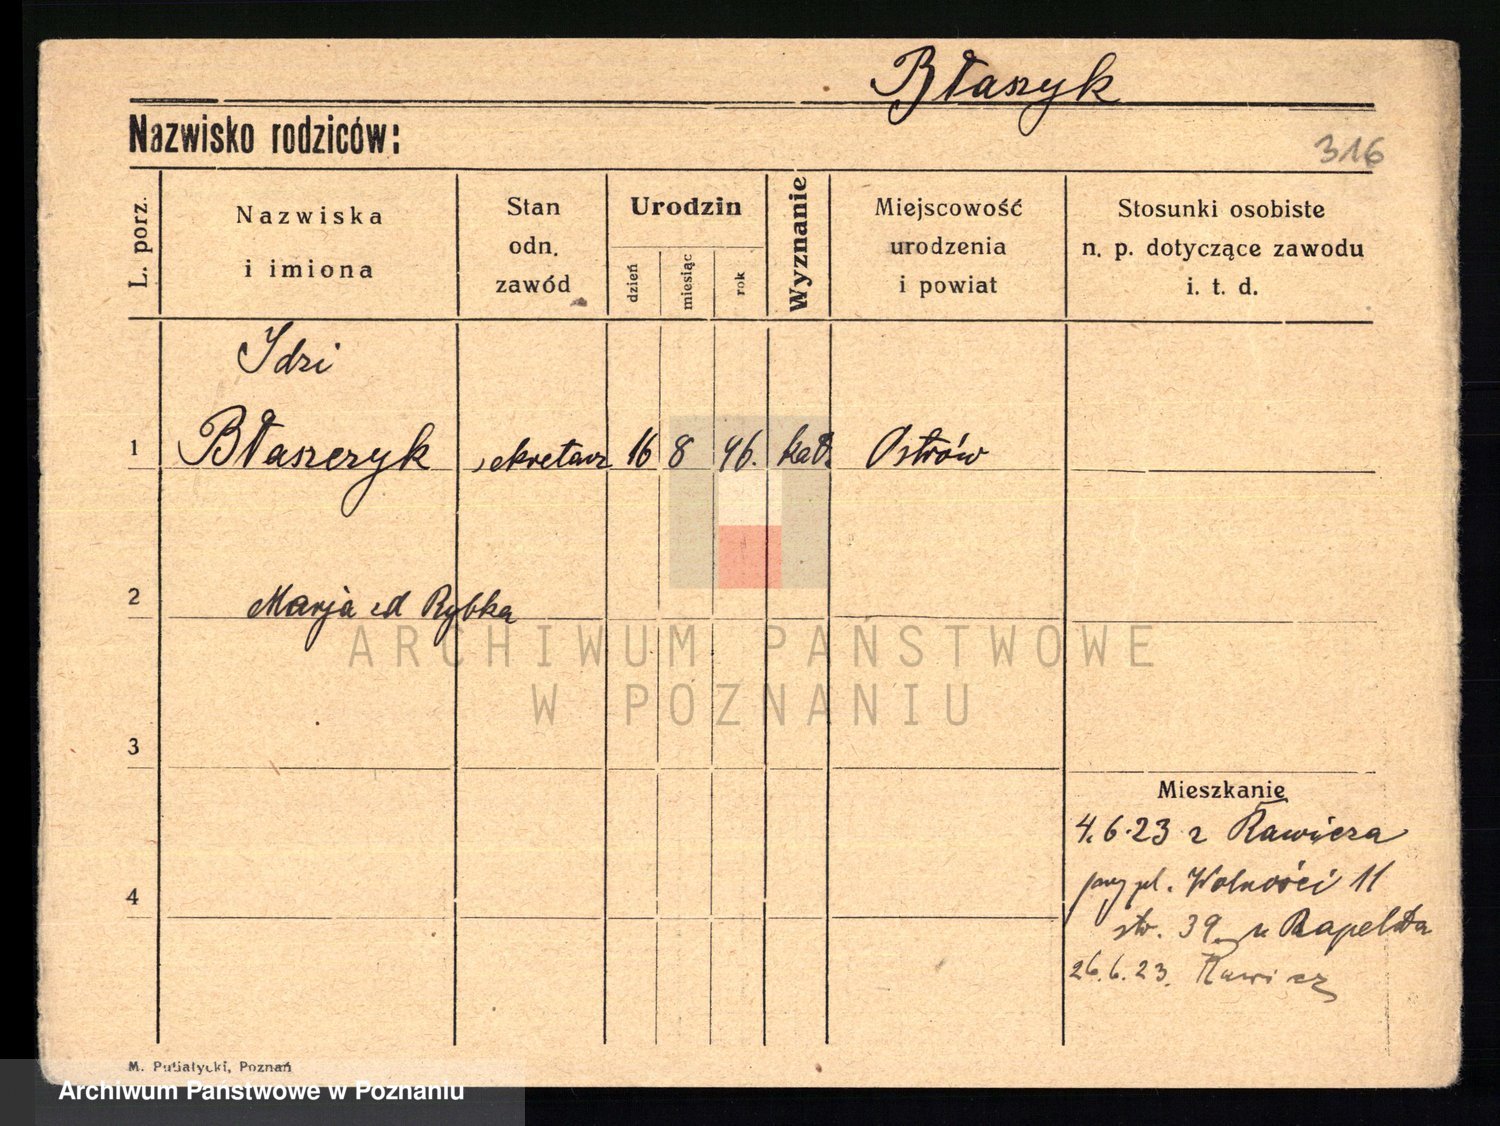 Błaszyk
Nazwisko rodziców:
316
L. porz.
Nazwiska
i imiona
Stan
odn.
zawód
Urodzin
dzień
miesiąc
rok
Wyznanie
Miejscowość
urodzenia
i powiat
Stosunki osobiste
n. p. dotyczące zawodu
i. t. d.
Idzi
1 Błaszczyk sekretarz 16 8 46. kat. Ostrów
2 Marja zd Rybka
3
4
Mieszkanie
4.6.23 z Rawicza
przy pl. Wolności 11
str. 39. u Rapelta
26.6.23. Rawicz
M. Putiatycki, Poznań
ARCHIWUM PAŃSTWOWE
W POZNANIU
Archiwum Państwowe w Poznaniu